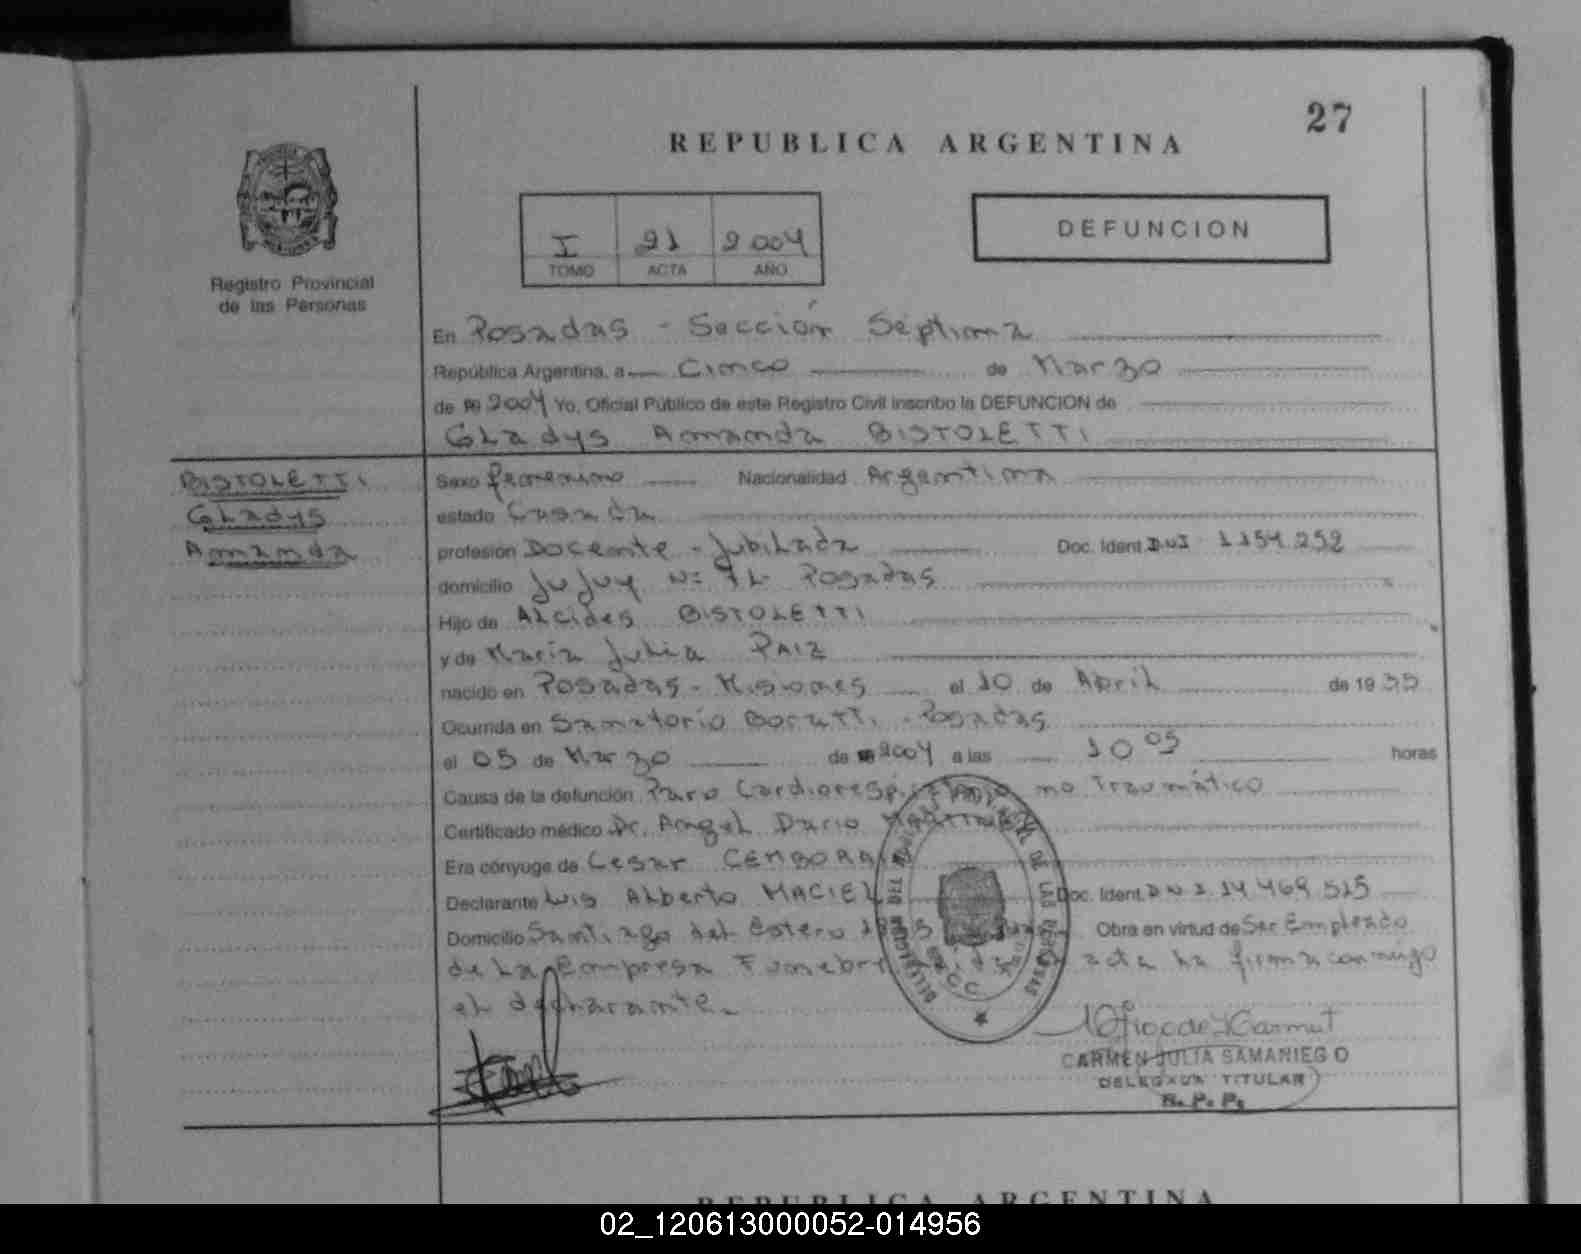 27
REPUBLICA ARGENTINA
Registro Provincial
de las Personas
I 21 2004
TOMO ACTA AÑO
DEFUNCION
En Posadas - Sección Séptima
República Argentina, a Cinco de Marzo
de 2004 Yo, Oficial Público de este Registro Civil inscribo la DEFUNCION de
GLadys Amanda BISTOLETTI
BISTOLETTI
GLadys
Amanda
Sexo femenino Nacionalidad Argentina
estado Casada
profesión Docente - JubiLada Doc. Ident. DNI 1.154.252
domicilio Jujuy Nº Posadas
Hijo de ALcides BISTOLETTI
y de María Julia PAIZ
nacido en Posadas - Misiones el 10 de Abril de 19 35
Ocurrida en Sanatorio Boratti - Posadas
el 05 de Marzo de 2004 a las 10 05 horas
Causa de la defunción Paro Cardiorespiratorio no Traumático
Certificado médico Dr. Angel Dario MARTINEZ
Era cónyuge de Cesar CEMBORAIN
Declarante Luis ALberto MACIEL Doc. Ident. DNI 14.469.515
Domicilio Santiago del Estero Obra en virtud de Ser Empleado
de La Empresa Funebre acta ha firma conmigo
el declarante.
CARMEN JULIA SAMANIEGO
DELEGADA TITULAR
R. P. P.
REPUBLICA ARGENTINA
02_120613000052-014956